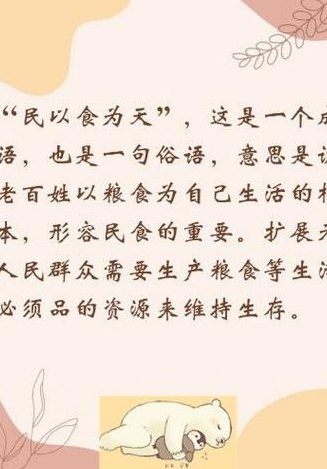 “民以食为天”，这是一个成
语，也是一句俗语，意思是说
老百姓以粮食为自己生活的根
本，形容民食的重要。扩展开
人民群众需要生产粮食等生活
必须品的资源来维持生存。